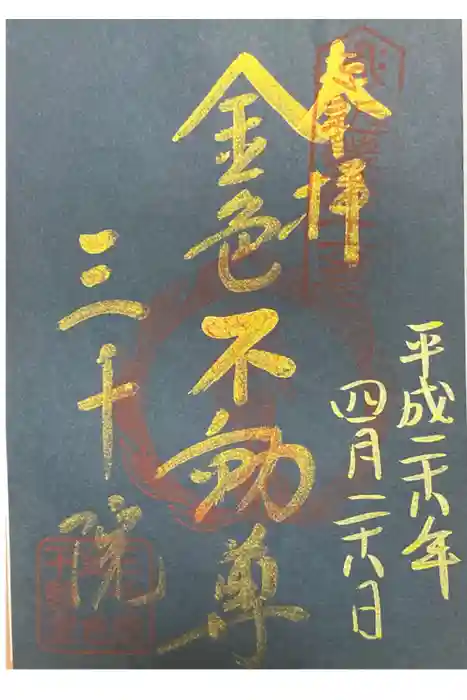 奉拝
金色不動尊
三千院
平成二十八年
四月二十八日